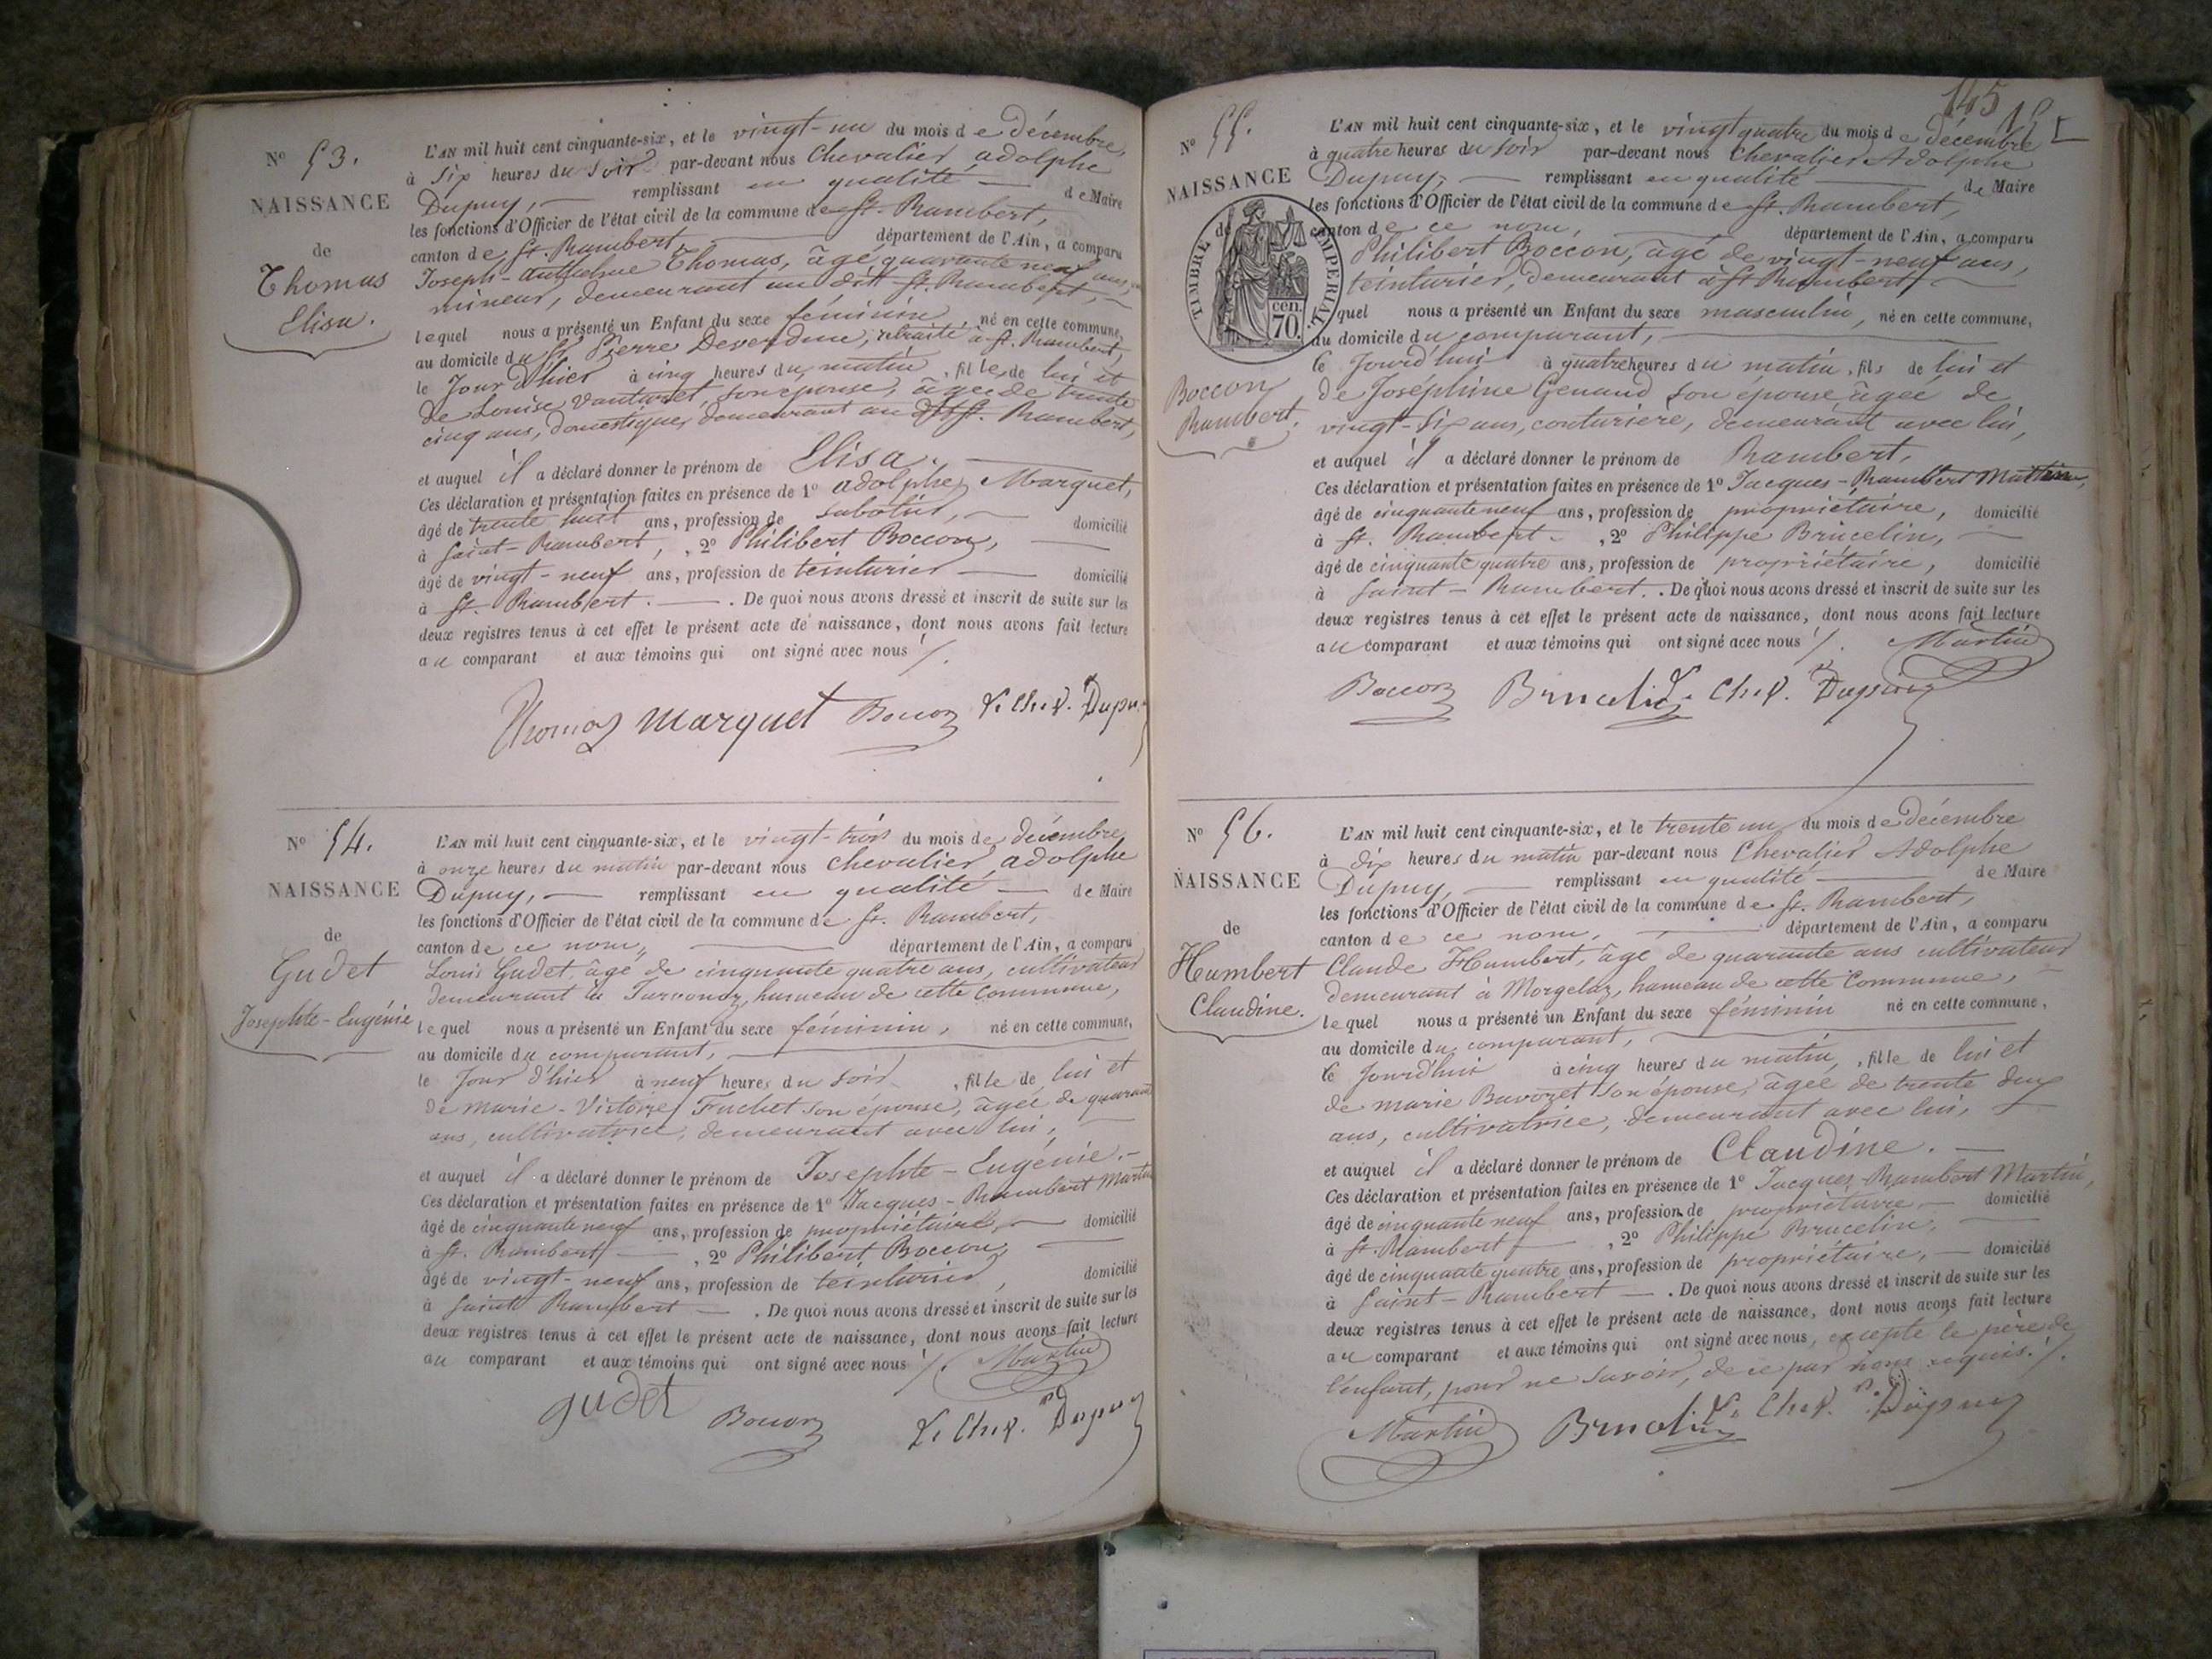 N° 53.
NAISSANCE
de
Thomas
Elisa.
L'AN mil huit cent cinquante-six, et le vingt-un du mois de décembre,
à six heures du soir par-devant nous Chevalier adolphe
Dupuy, remplissant en qualité de Maire
les fonctions d'Officier de l'état civil de la commune de St. Rambert,
canton de St. Rambert, département de l'Ain, a comparu
Joseph-Anthelme Thomas, âgé quarante neuf ans,
mineur, demeurant au dit St. Rambert,
lequel nous a présenté un Enfant du sexe féminin, né en cette commune,
au domicile du Sr. Pierre retraité à St. Rambert,
le Jour d'hier à cinq heures du matin, fille de lui et
de Louise son épouse, âgée de trente
cinq ans, domestique, demeurant au dit St. Rambert,
et auquel il a déclaré donner le prénom de Elisa.
Ces déclaration et présentation faites en présence de 1° adolphe Marquet,
âgé de trente huit ans, profession de sabotier, domicilié
à Saint-Rambert, , 2° Philibert Boccon,
âgé de vingt-neuf ans, profession de teinturier domicilié
à St. Rambert. . De quoi nous avons dressé et inscrit de suite sur les
deux registres tenus à cet effet le présent acte de naissance, dont nous avons fait lecture
au comparant et aux témoins qui ont signé avec nous /.
Thomas Marquet Boccon Le Cher. Dupuy
N° 54.
NAISSANCE
de
Gudet
Josephte-Eugénie
L'AN mil huit cent cinquante-six, et le vingt-trois du mois de décembre
à onze heures du matin par-devant nous chevalier adolphe
Dupuy, remplissant en qualité de Maire
les fonctions d'Officier de l'état civil de la commune de St. Rambert,
canton de ce nom, département de l'Ain, a comparu
Louis Gudet, âgé de cinquante quatre ans, cultivateur
demeurant à hameau de cette Commune,
lequel nous a présenté un Enfant du sexe féminin, né en cette commune,
au domicile du comparant,
le Jour d'hier à neuf heures du soir, fille de lui et
de marie-Victoire Fuchet son épouse, âgée de quarante
ans, cultivatrice, demeurant avec lui,
et auquel il a déclaré donner le prénom de Josephte-Eugénie.
Ces déclaration et présentation faites en présence de 1° Jacques-Rambert Martin
âgé de cinquante neuf ans, profession de propriétaire, domicilié
à St. Rambert , 2° Philibert Boccon,
âgé de vingt-neuf ans, profession de teinturier, domicilié
à Saint Rambert . De quoi nous avons dressé et inscrit de suite sur les
deux registres tenus à cet effet le présent acte de naissance, dont nous avons fait lecture
au comparant et aux témoins qui ont signé avec nous /. Martin
gudet Boccon Le Cher. Dupuy
145
N° 55.
NAISSANCE
de
TIMBRE IMPERIAL.
cen.
70.
Boccon
Rambert.
L'AN mil huit cent cinquante-six, et le vingt quatre du mois de décembre
à quatre heures du soir par-devant nous Chevalier Adolphe
Dupuy, remplissant en qualité de Maire
les fonctions d'Officier de l'état civil de la commune de St. Rambert,
canton de ce nom, département de l'Ain, a comparu
Philibert Boccon, âgé de vingt-neuf ans,
teinturier, demeurant à St Rambert,
lequel nous a présenté un Enfant du sexe masculin, né en cette commune,
au domicile du comparant,
le Jourd'hui à quatre heures du matin, fils de lui et
de Joséphine Genaud son épouse âgée de
vingt-six ans, couturière, demeurant avec lui,
et auquel il a déclaré donner le prénom de Rambert,
Ces déclaration et présentation faites en présence de 1° Jacques-Rambert Martin,
âgé de cinquante neuf ans, profession de propriétaire, domicilié
à St. Rambert. , 2° Philippe Brucelin,
âgé de cinquante quatre ans, profession de propriétaire, domicilié
à Saint-Rambert. . De quoi nous avons dressé et inscrit de suite sur les
deux registres tenus à cet effet le présent acte de naissance, dont nous avons fait lecture
au comparant et aux témoins qui ont signé avec nous /. Martin
Boccon Brucelin Le Cher. Dupuy
N° 56.
NAISSANCE
de
Humbert
Claudine.
L'AN mil huit cent cinquante-six, et le trente un du mois de décembre
à dix heures du matin par-devant nous Chevalier Adolphe
Dupuy, remplissant en qualité de Maire
les fonctions d'Officier de l'état civil de la commune de St. Rambert,
canton de ce nom, département de l'Ain, a comparu
Claude Humbert, âgé de quarante ans cultivateur
demeurant à Morgelaz, hameau de cette Commune,
lequel nous a présenté un Enfant du sexe féminin né en cette commune,
au domicile du comparant,
le Jourd'hui à cinq heures du matin, fille de lui et
de marie Bavozet son épouse, âgée de trente deux
ans, cultivatrice, demeurant avec lui,
et auquel il a déclaré donner le prénom de Claudine.
Ces déclaration et présentation faites en présence de 1° Jacques Rambert Martin,
âgé de cinquante neuf ans, profession de propriétaire domicilié
à St. Rambert , 2° Philippe Brucelin,
âgé de cinquante quatre ans, profession de propriétaire, domicilié
à Saint-Rambert . De quoi nous avons dressé et inscrit de suite sur les
deux registres tenus à cet effet le présent acte de naissance, dont nous avons fait lecture
au comparant et aux témoins qui ont signé avec nous, excepté le père de
l'enfant, pour ne savoir, de ce par nous requis. /.
Martin Brucelin Le Cher. Dupuy